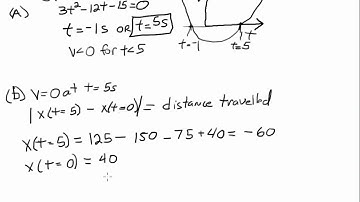 (A)
3t²-12t-15=0
t=-1s or t=5s
v<0 for t<5
t=-1
t=5
t
(B) v=0 at t=5s
|x(t=5) - x(t=0)| = distance travelled
x(t=5) = 125 - 150 - 75 + 40 = -60
x(t=0) = 40